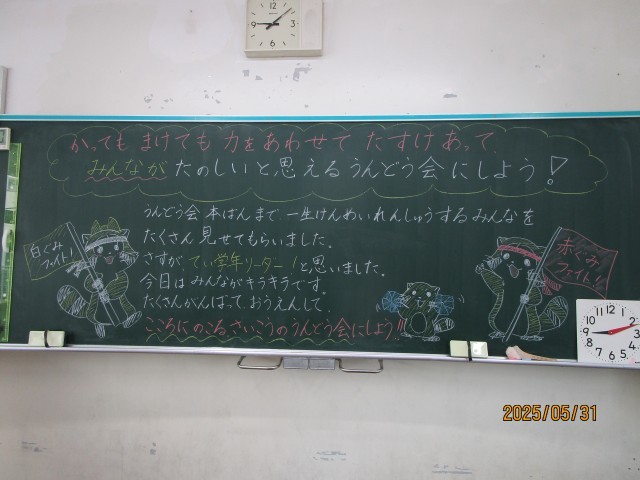 かっても まけても 力をあわせて たすけあって、
みんなが たのしいと思えるうんどう会にしよう!
うんどう会 本ばんまで 一生けんめいれんしゅうするみんなを
たくさん見せてもらいました。
さすが、てい学年リーダー!と思いました。
今日は みんながキラキラです。
たくさんがんばって おうえんして、
こころにのこるさいこうのうんどう会にしよう!!
白ぐみ
ファイト!
赤ぐみ
ファイト!!
2025/05/31